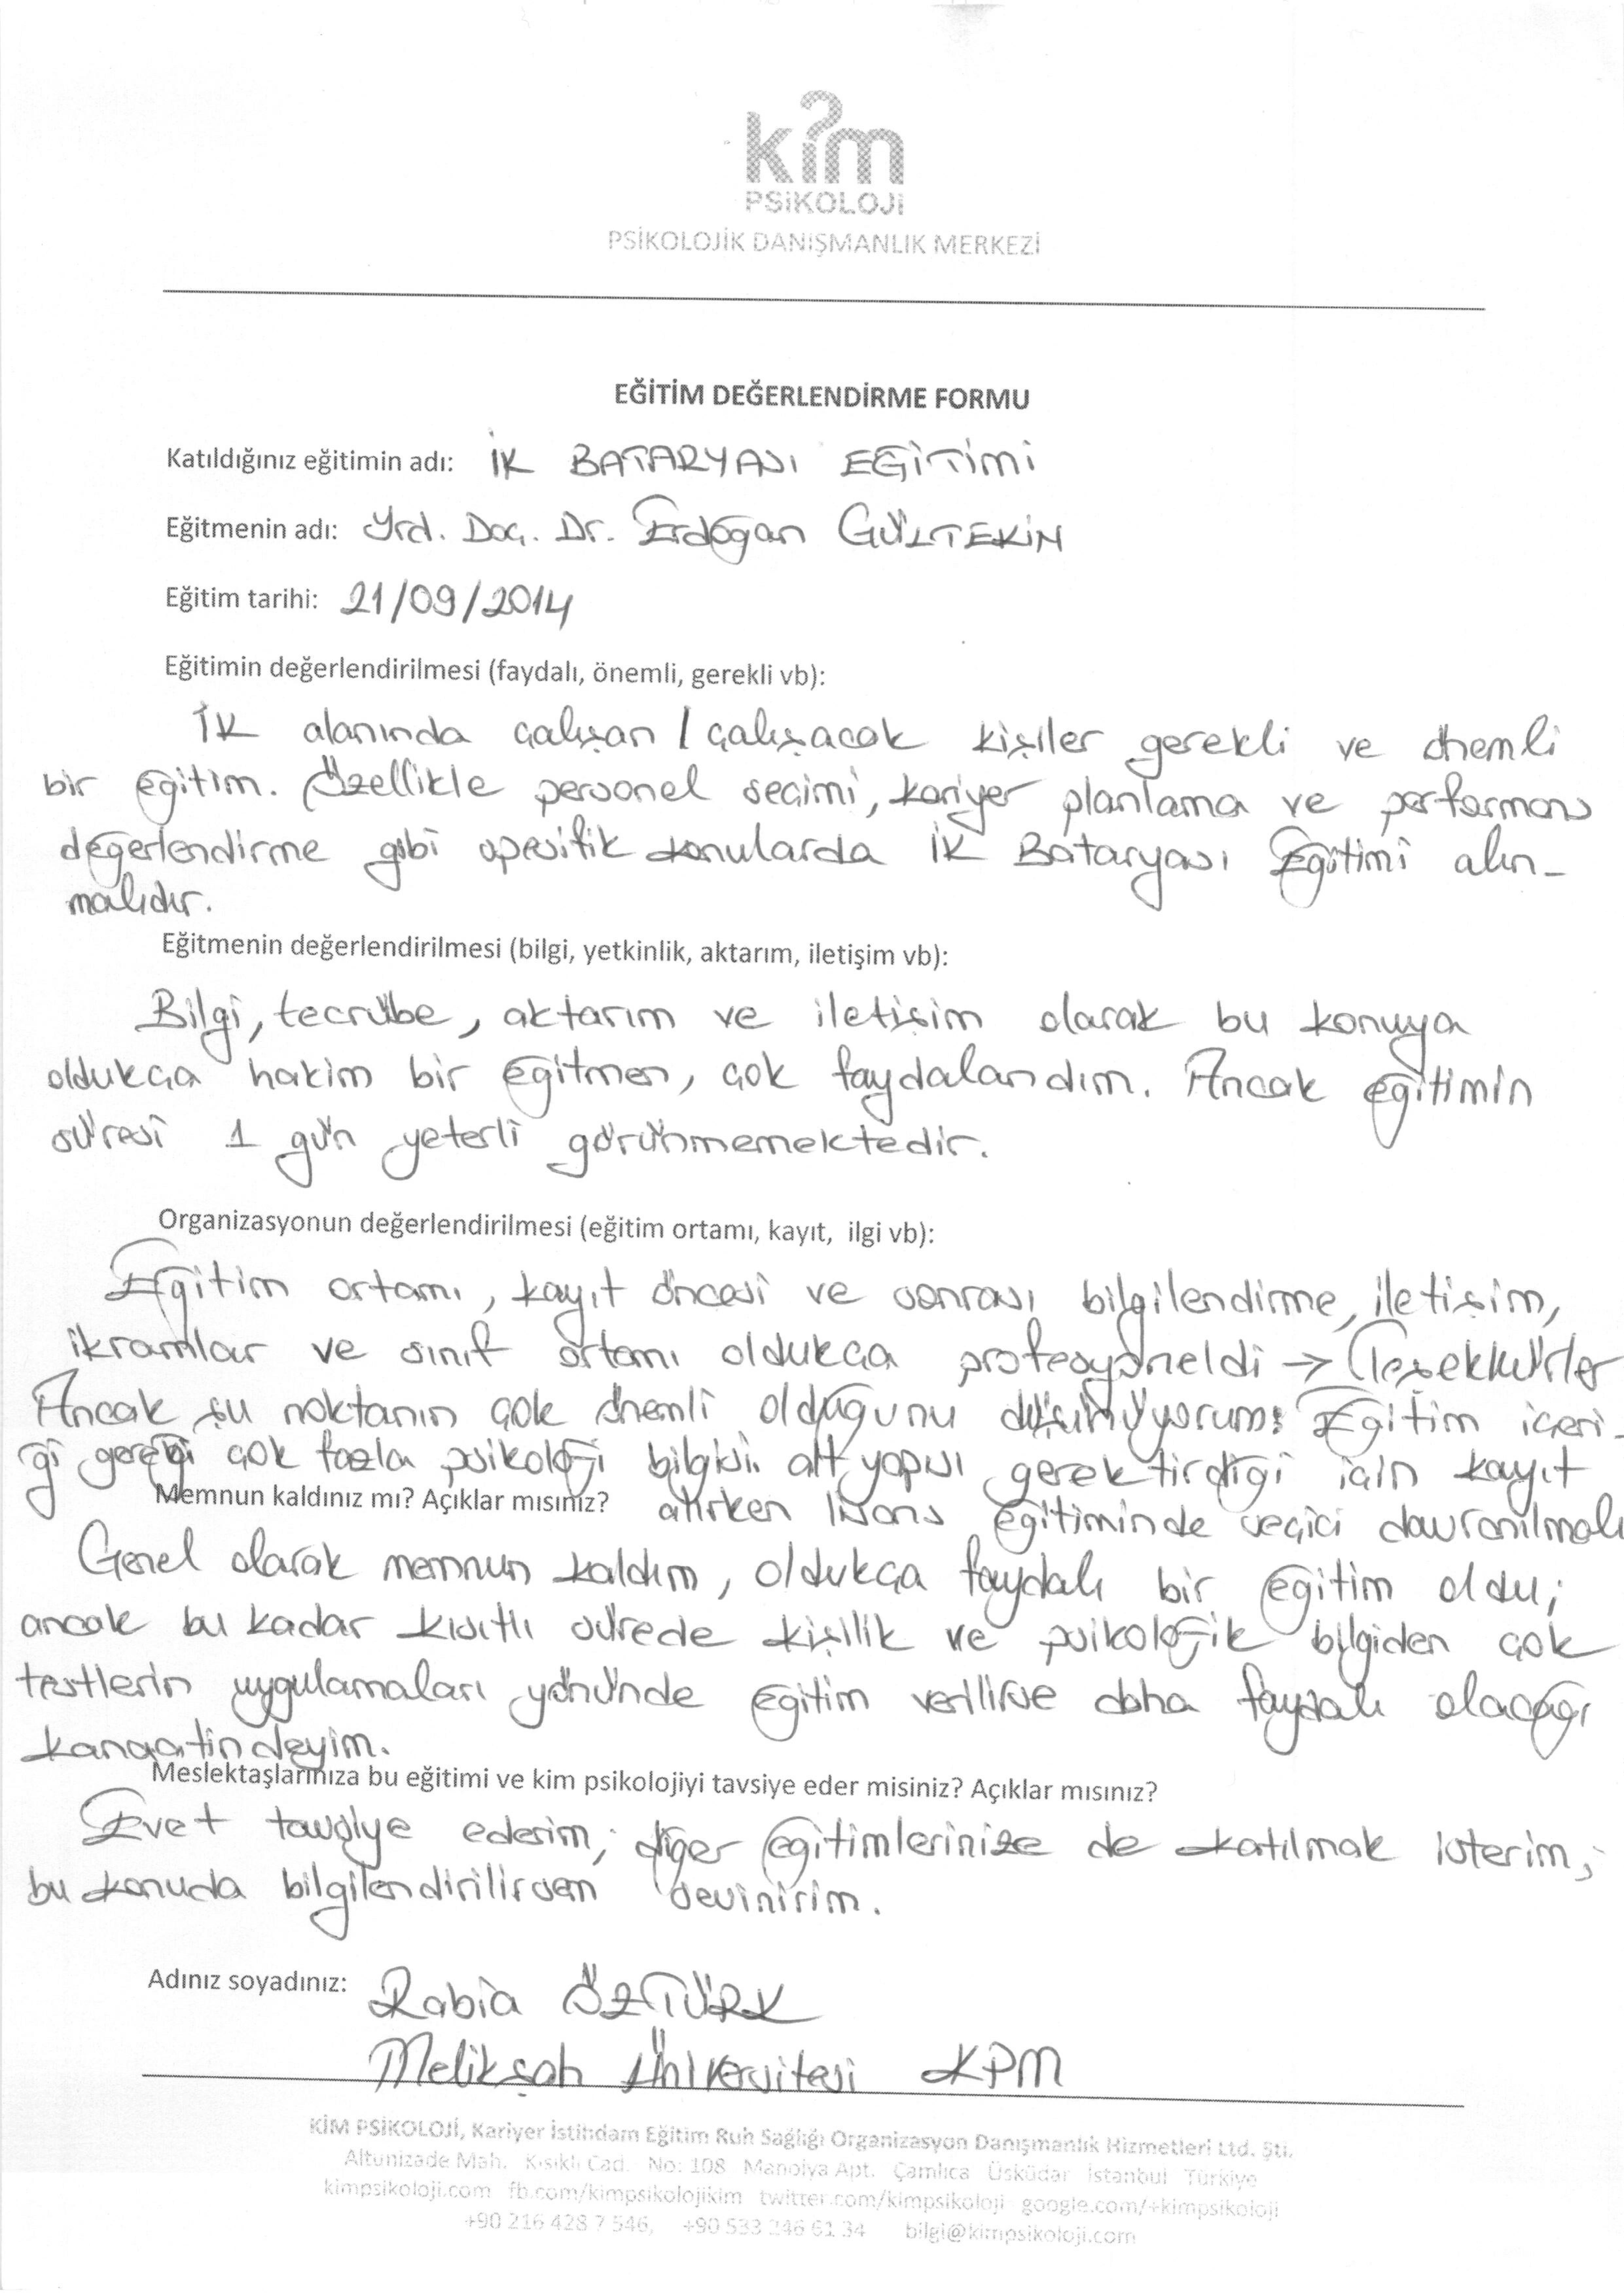 kim
PSİKOLOJİ
PSİKOLOJİK DANIŞMANLIK MERKEZİ
EĞİTİM DEĞERLENDİRME FORMU
Katıldığınız eğitimin adı: İK BATARYASI EĞİTİMİ
Eğitmenin adı: Yrd. Doç. Dr. Erdoğan GÜLTEKİN
Eğitim tarihi: 21/09/2014
Eğitimin değerlendirilmesi (faydalı, önemli, gerekli vb):
İK alanında çalışan / çalışacak kişiler gerekli ve önemli
bir eğitim. Özellikle personel seçimi, kariyer planlama ve performans
değerlendirme gibi spesifik konularda İK Bataryası Eğitimi alın-
malıdır.
Eğitmenin değerlendirilmesi (bilgi, yetkinlik, aktarım, iletişim vb):
Bilgi, tecrübe, aktarım ve iletişim olarak bu konuya
oldukça hakim bir eğitmen, çok faydalandım. Ancak eğitimin
süresi 1 gün yeterli görünmemektedir.
Organizasyonun değerlendirilmesi (eğitim ortamı, kayıt, ilgi vb):
Eğitim ortamı, kayıt öncesi ve sonrası bilgilendirme, iletişim,
ikramlar ve sınıf ortamı oldukça profesyoneldi → Teşekkürler
Ancak şu noktanın çok önemli olduğunu düşünüyorum: Eğitim içeri-
ği gereği çok fazla psikoloji bilgisi alt yapısı gerektirdiği için kayıt
alırken lisans eğitiminde seçici davranılmalı
Memnun kaldınız mı? Açıklar mısınız?
Genel olarak memnun kaldım, oldukça faydalı bir eğitim oldu;
ancak bu kadar kısıtlı sürede kişilik ve psikolojik bilgiden çok
testlerin uygulamaları yönünde eğitim verilirse daha faydalı olacağı
kanaatindeyim.
Meslektaşlarınıza bu eğitimi ve kim psikolojiyi tavsiye eder misiniz? Açıklar mısınız?
Evet tavsiye ederim, diğer eğitimlerinize de katılmak isterim;
bu konuda bilgilendirilirsem sevinirim.
Adınız soyadınız: Rabia ÖZTÜRK
Melikşah Üniversitesi KPM
KİM PSİKOLOJİ, Kariyer İstihdam Eğitim Ruh Sağlığı Organizasyon Danışmanlık Hizmetleri Ltd. Şti.
Altunizade Mah. Kısıklı Cad. No: 108 Manolya Apt. Çamlıca Üsküdar İstanbul Türkiye
kimpsikoloji.com fb.com/kimpsikolojikim twitter.com/kimpsikoloji google.com/+kimpsikoloji
+90 216 428 7 546, +90 533 246 61 34 bilgi@kimpsikoloji.com